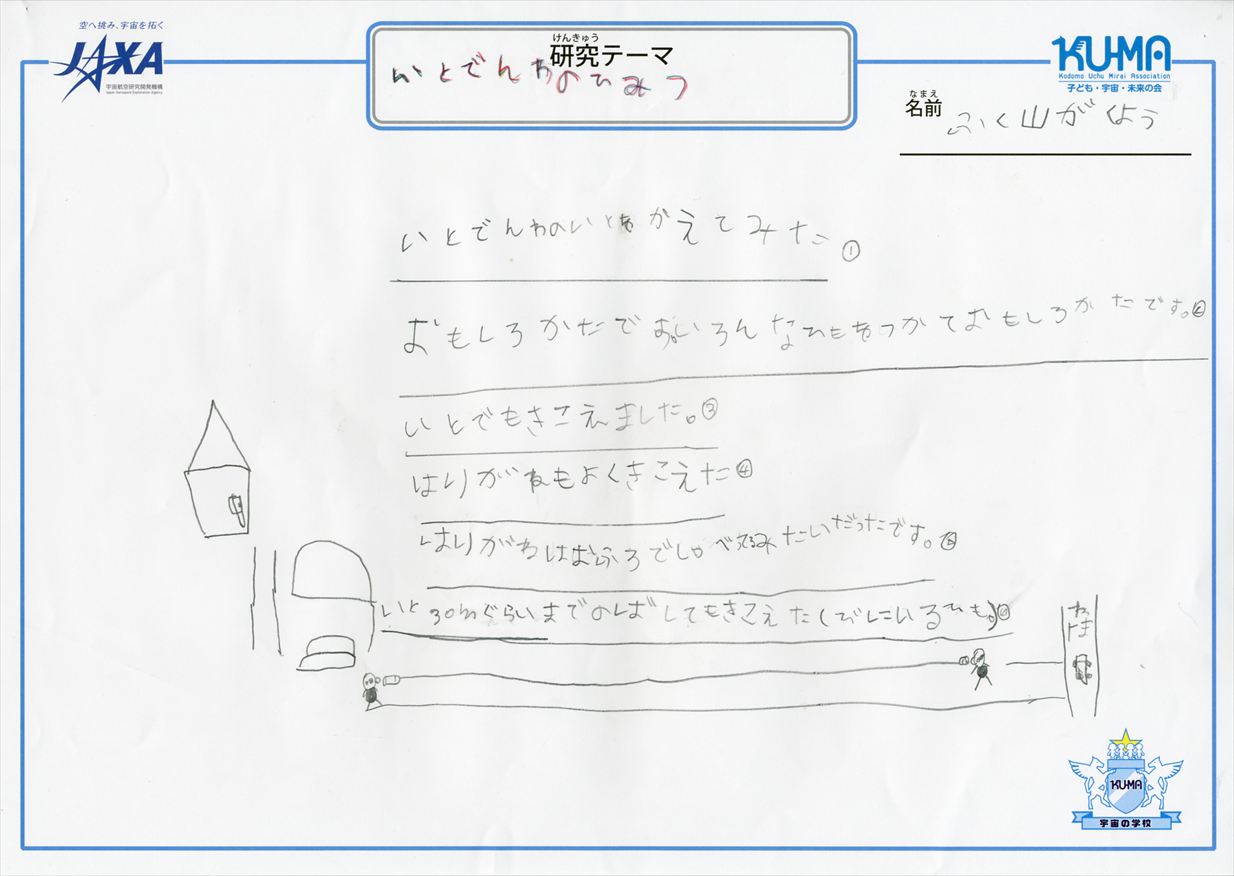 空へ挑み、宇宙を拓く
JAXA
宇宙航空研究開発機構
Japan Aerospace Exploration Agency
けんきゅう
研究テーマ
いとでんわのひみつ
KU-MA
Kodomo Uchu Mirai Association
子ども・宇宙・未来の会
なまえ
名前
ふく山がくよう
いとでんわのいとをかえてみた ①
おもしろかたでお。いろんなひもをつかておもしろかたです。②
いとでもきこえました。③
はりがねもよくきこえた④
はりがねはおふろでしゃべってるみたいだったです。⑤
いと30mぐらいまでのばしてもきこえた(びにいるひも。)⑥
KU-MA
宇宙の学校